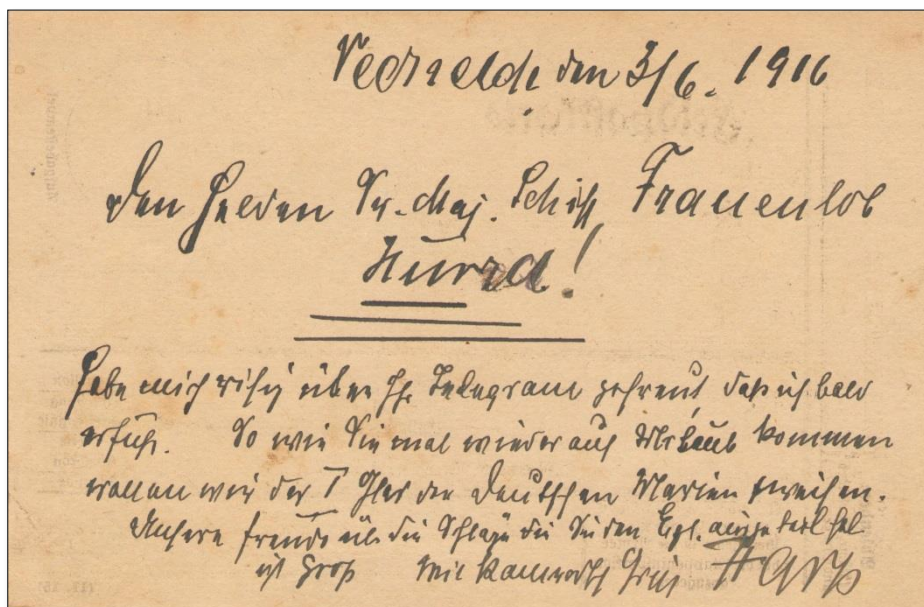 Vechelde den 3/6. 1916
Den Helden Sr. Maj. Schiff Frauenlob
Hurra!
Habe mich riesig über Ihr Telegram gefreut, daß ich bald
erfuhr. So wie Sie mal wieder auf Urlaub kommen
wollen wir der Deutschen Marine weihen.
Unsere Freude üb. die Schläge die Sie den Engl. ausgeteilt
ist Groß Mit Gruß